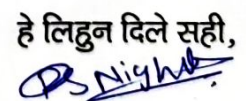 हे लिहुन दिले सही,